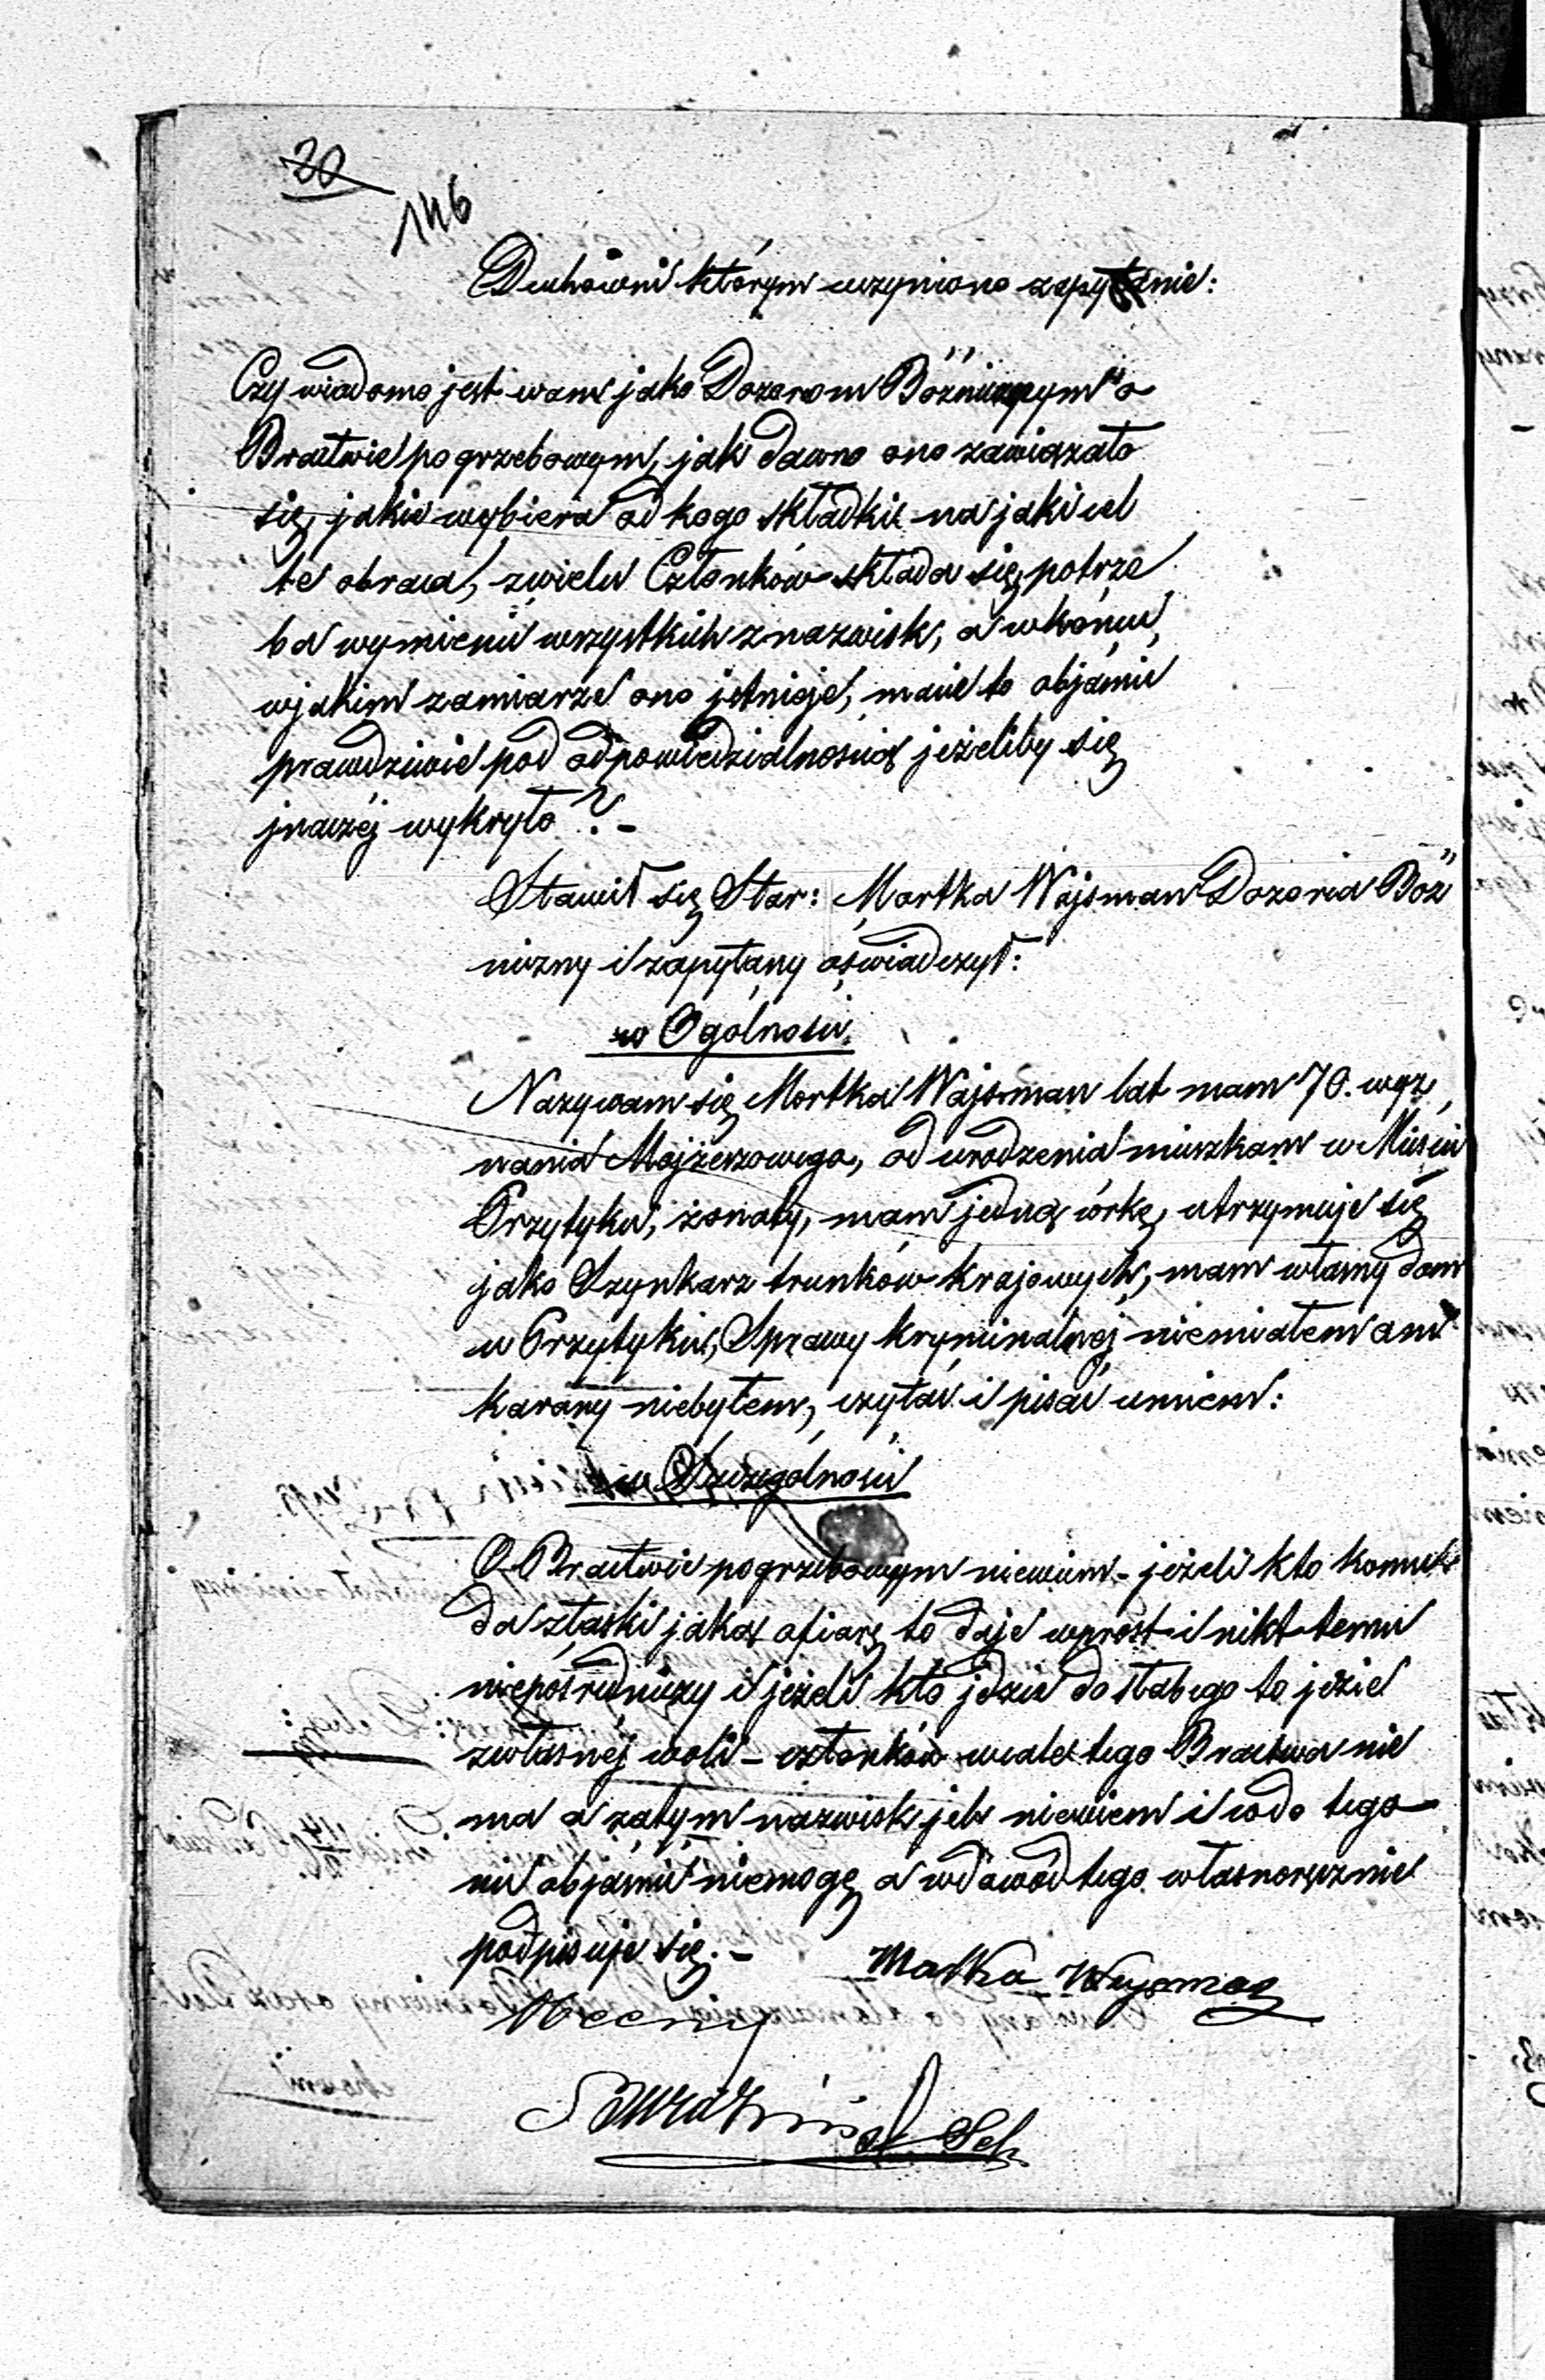 30
146
Duchowni którym uczyniono zapytanie:
Czy wiadomo jest wam jako Dozorom Bóżniczym o
Bractwie pogrzebowym, jak dawno ono zawiązało
się, jakie wybiera od kogo składkie na jaki cel
te obraca, zwielu Członków składa się, potrze
ba wymienić wszystkich z nazwisk, a wkońcu
wjakim zamiarze ono jstnieje, macie to objaśnić
prawdziwie pod odpowiedzialnością jeżeliby się
jnaczéj wykryło? -
Stawił się Star: Mortka Wajsman Dozorca Bóż
niczny i zapytany oświadczył:
w Ogólności
Nazywam się Mortka Wajsman lat mam 70. wyz
nania Mojżeszowego, od urodzenia mieszkam w Mieście
Przytyku, żonaty, mam jedną córkę, utrzymuje się
jako Szynkarz trunków krajowych, mam własny dom
w Przytyku, Sprawy kryminalnej niemiałem ani
karany niebyłem, czytać i pisać umiem:
w Szczególności
O Bractwie pogrzebowym niewiem - jeżeli kto komu
da złaski jaką ofiarę to daje wprost i nikt temu
niepośredniczy i jeżeli kto jdzie do słabego to jdzie
zwłasnéj woli - członków wcale tego Bractwa nie
ma a zatym nazwisk jch niewiem i codo tego
nic objaśnić niemogę, a wdowód tego własnoręcznie
podpisuje się. -
Matka Wajsman
Obecny
Sek